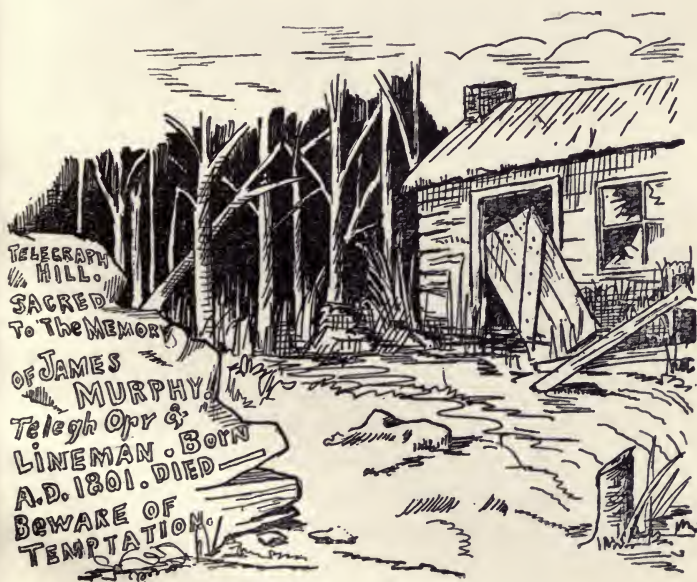 TELEGRAPH
HILL.
SACRED
To The MEMORY
OF JAMES
MURPHY.
Telegh Opr &
LINEMAN. BORN
A.D. 1801. DIED —
BEWARE OF
TEMPTATION.